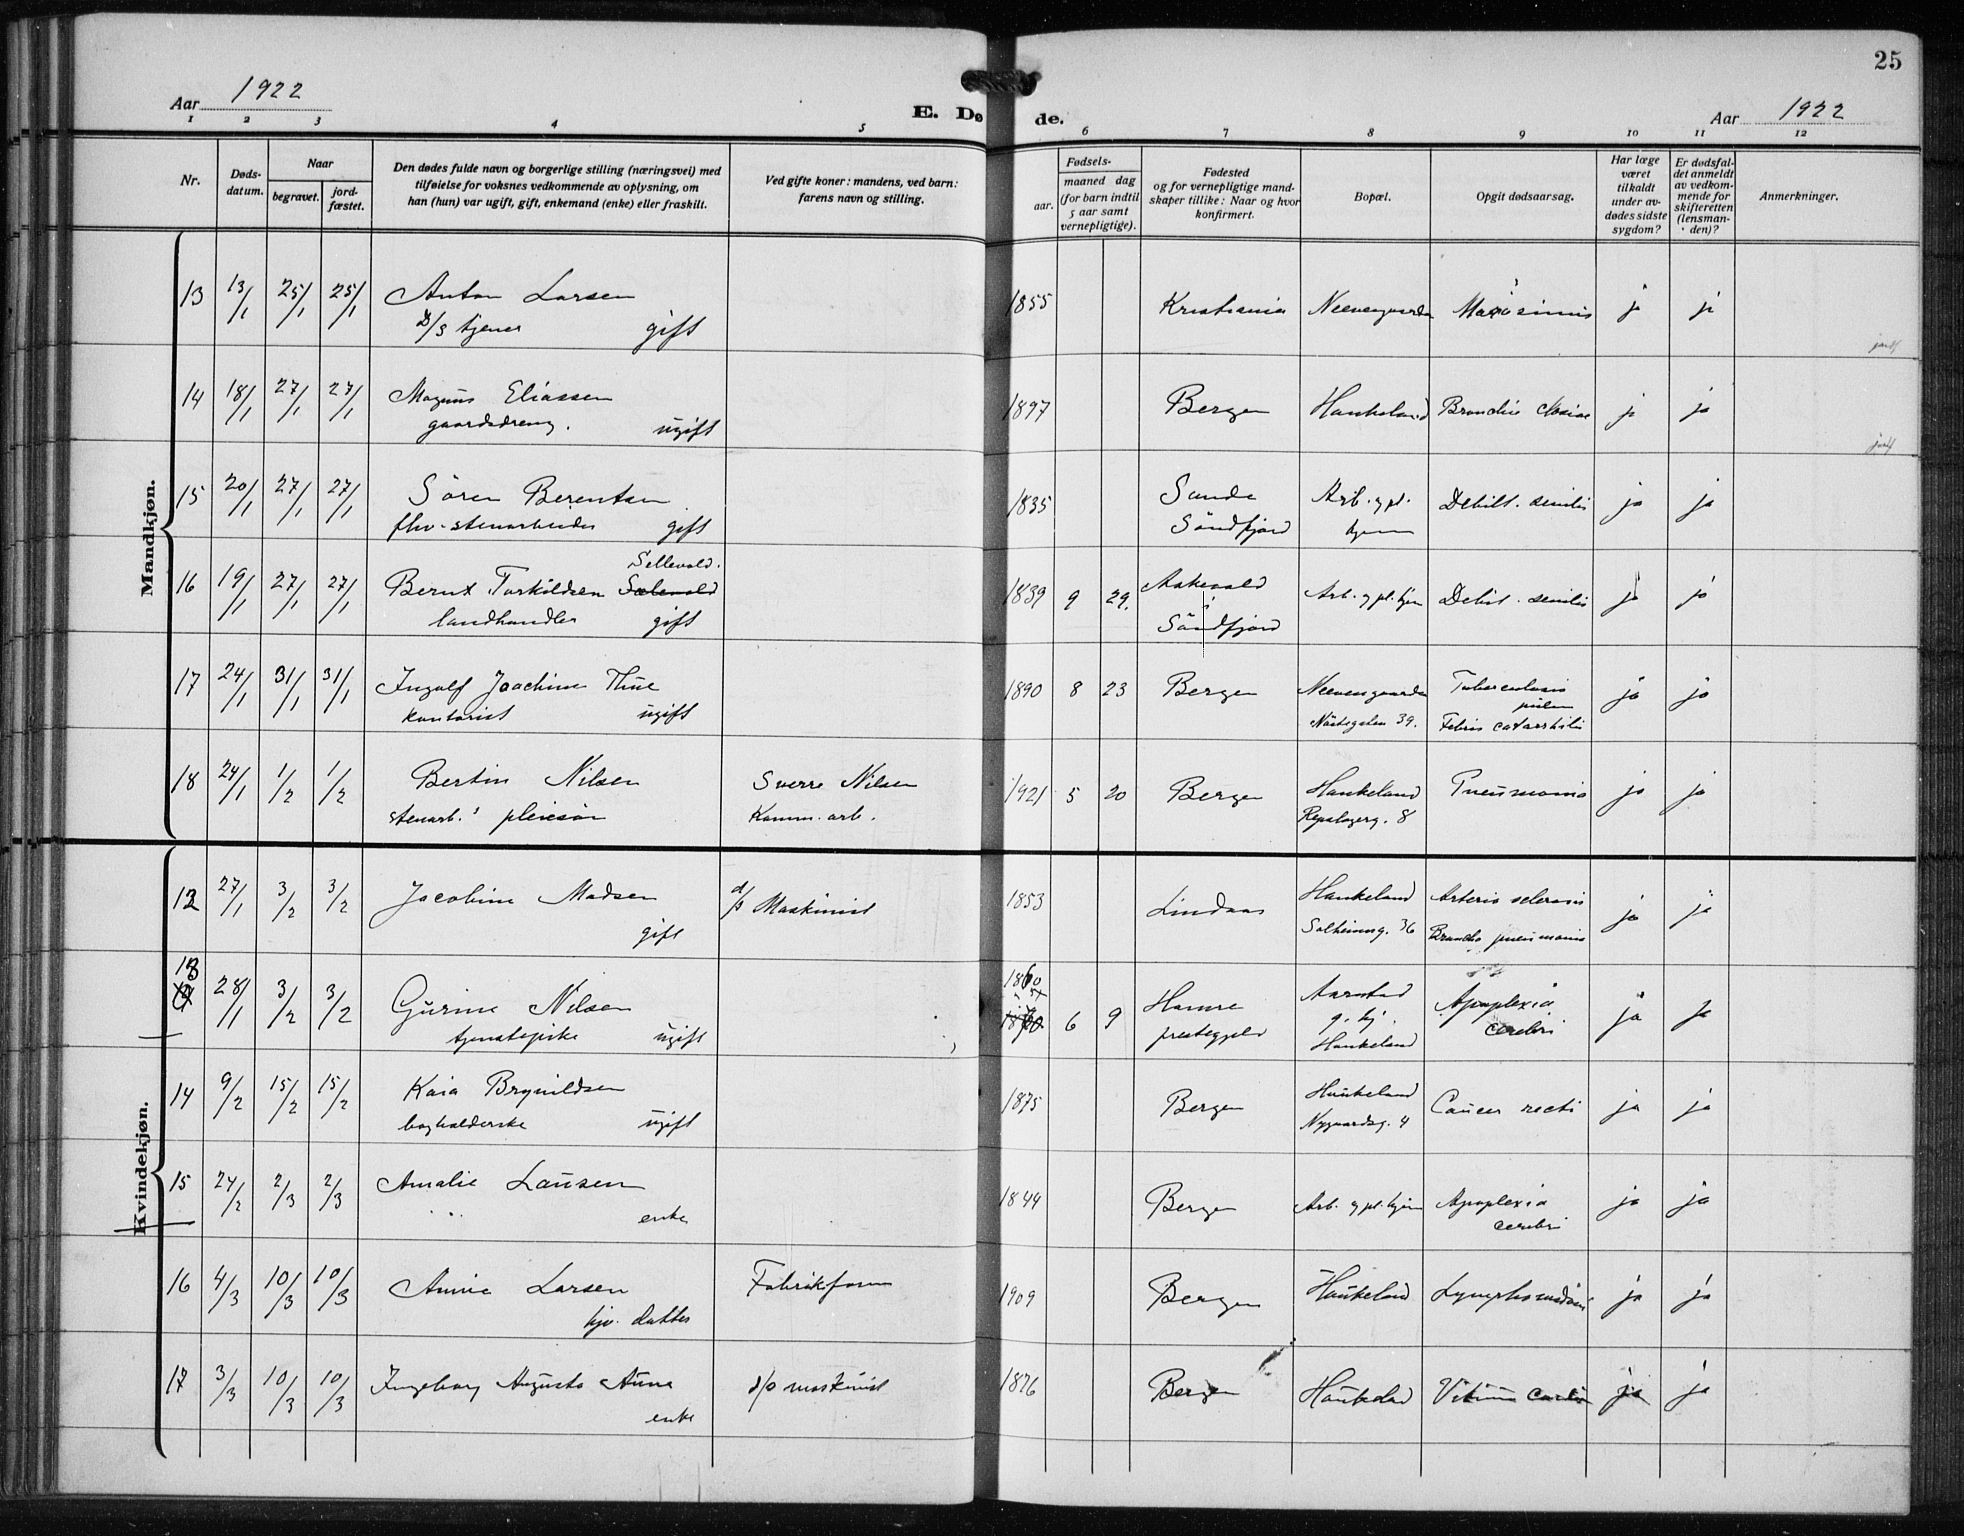 25
Aar 1922
E. Døde.
Aar 1922
1 2 3 4 5 6 7 8 9 10 11 12
Nr.
Døds-datum.
Naar
begravet.
jord-fæstet.
Den dødes fulde navn og borgerlige stilling (næringsvei) med
tilføielse for voksnes vedkommende av oplysning, om
han (hun) var ugift, gift, enkemand (enke) eller fraskilt.
Ved gifte koner: mandens, ved barn:
farens navn og stilling.
Fødsels-
aar.
maaned dag
(for barn indtil
5 aar samt
vernepligtige).
Fødested
og for vernepligtige mand-
skaper tillike: Naar og hvor
konfirmert.
Bopæl.
Opgit dødsaarsag.
Har læge
været
tilkaldt
under av-
dødes sidste
sygdom?
Er dødsfal-
det anmeldt
av vedkom-
mende for
skifteretten
(lensman-
den)?
Anmerkninger.
Mandkjøn.
13 13/1 25/1 25/1 Anton Larsen 1855 Kristiania Neevengaarden ja ja
D/S tjener gift
14 18/1 27/1 27/1 Magnus Eliassen 1897 Bergen Haukeland ja ja
gaardsdreng. ugift
15 20/1 27/1 27/1 Sören Berentsen 1835 Sande Arb. og pl. Debilit. senilis ja ja
fhv. stenarbeider gift Söndfjord hjem
Sellevold.
16 19/1 27/1 27/1 Bernt Torkildsen Sælevold 1839 9 29. Askevold Arb. og pl. hjem Debilit. senilis ja ja
landhandler gift i Söndfjord
17 24/1 31/1 31/1 Ingolf Joachim Thue 1890 8 23 Bergen Neevengaarden Tuberculosis pulm ja ja
kontorist ugift Nöstegaten 39. Febris catarrhalis
18 24/1 1/2 1/2 Bertin Nilsen Sverre Nilsen 1921 5 20 Bergen Haukeland Pneumonia ja ja
stenarb.s pleiesön Komm. arb. Repslagerg. 8
Kvindekjøn.
12 27/1 3/2 3/2 Jacobine Madsen d/o Maskinist 1853 Lindaas Haukeland Arterio sclerosis ja ja
gift Solheimsg. 36 Broncho pneumonia
13 28/1 3/2 3/2 Gurine Nilsen 1860 6 9 Hamre Aarstad Apoplexia ja ja
tjenestepike ugift prestegjeld g. hj. cerebri
Haukeland
14 9/2 15/2 15/2 Kaia Brynildsen 1875 Bergen Haukeland Cancer recti ja ja
bogholderske ugift Nygaardsg. 4
15 24/2 2/3 2/3 Amalie Lausen 1844 Bergen Arb. og pl. hjem Apoplexia ja ja
enke cerebri
16 4/3 10/3 10/3 Annie Larsen Fabrikform 1909 Bergen Haukeland ja ja
hjv. datter
17 3/3 10/3 10/3 Ingeborg Augusta Aune d/o maskinist 1876 Bergen Haukeland Vitium cordis ja ja
enke